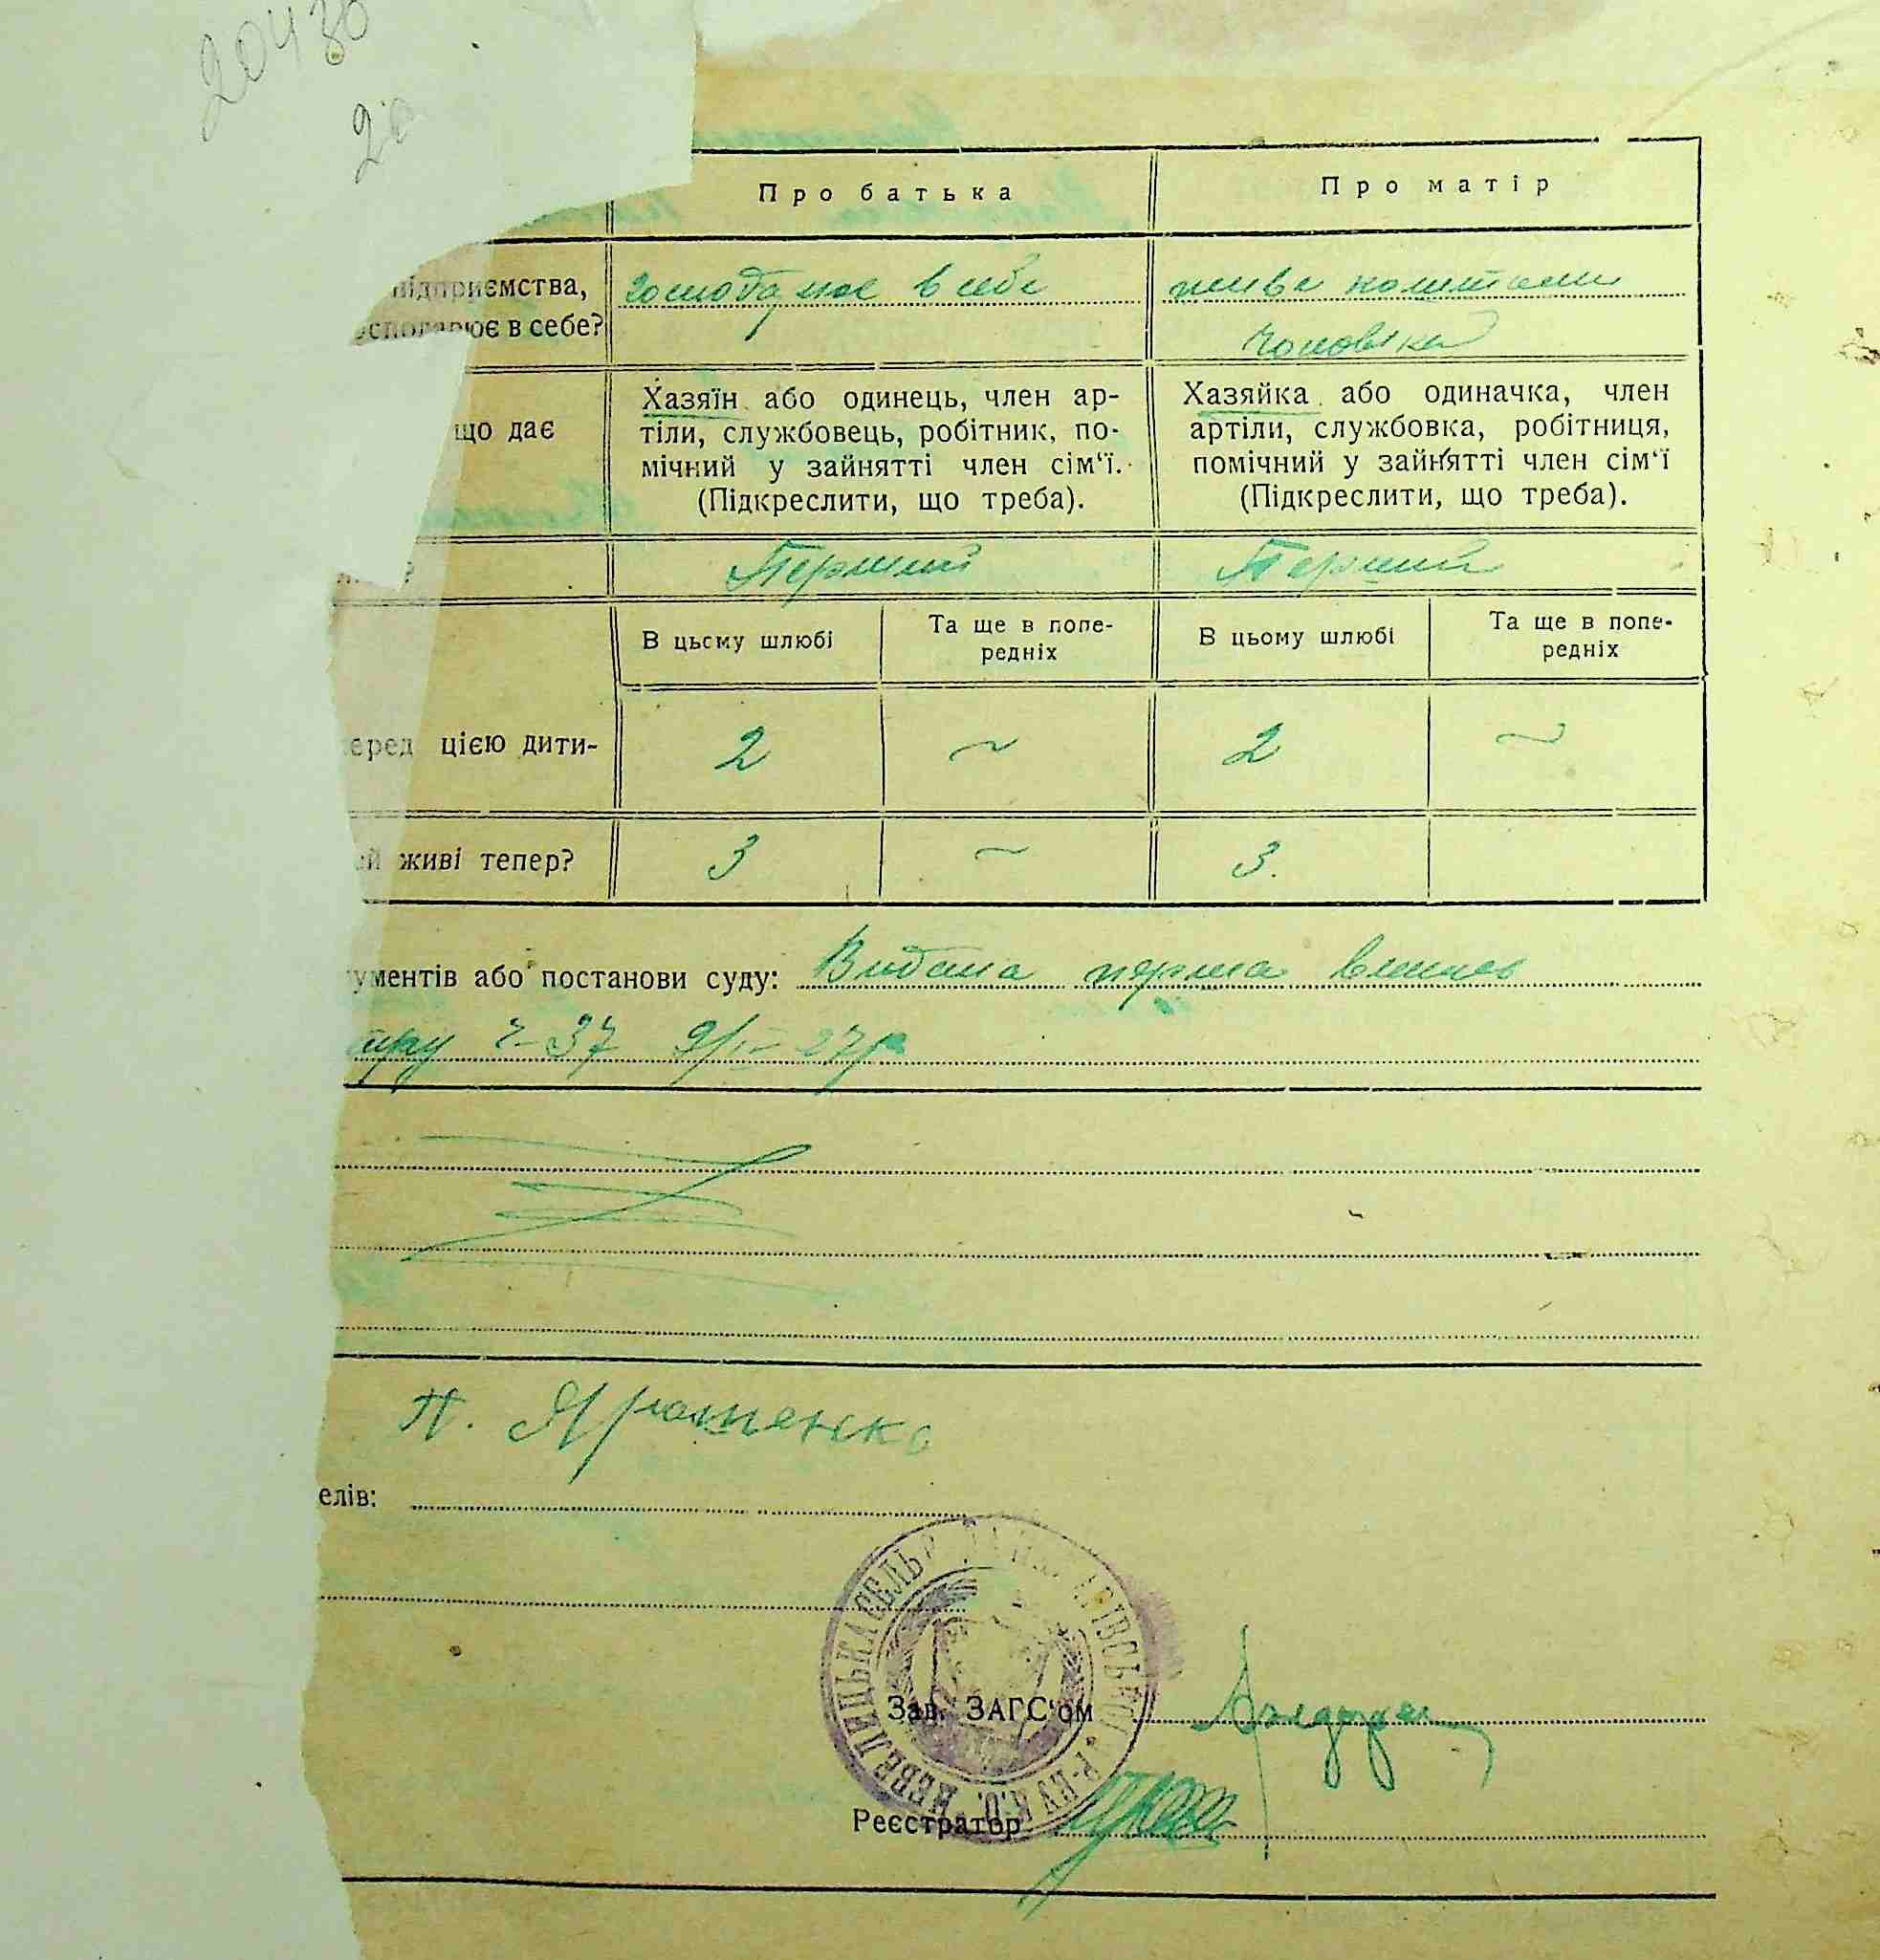 20430
20
Про батька
Про матір
підприємства,
господарює в себе?
господарює в себе
живе коштами
чоловіка
що дає
Хазяїн або одинець, член ар-
тіли, службовець, робітник, по-
мічний у зайнятті член сім‘ї.
(Підкреслити, що треба).
Хазяйка або одиначка, член
артіли, службовка, робітниця,
помічний у зайнятті член сім‘ї
(Підкреслити, що треба).
?
Перший
Перший
В цьому шлюбі
Та ще в попе-
редніх
В цьому шлюбі
Та ще в попе-
редніх
перед цією дити-
2
~
2
~
й живі тепер?
3
~
3.
ументів або постанови суду: Видана перша випись
ч-37 9/I-27р
П. Ярошенко
елів:
ВЕЛИЦЬКА СЕЛЬ
Зав. ЗАГС‘ом
Реєстратор